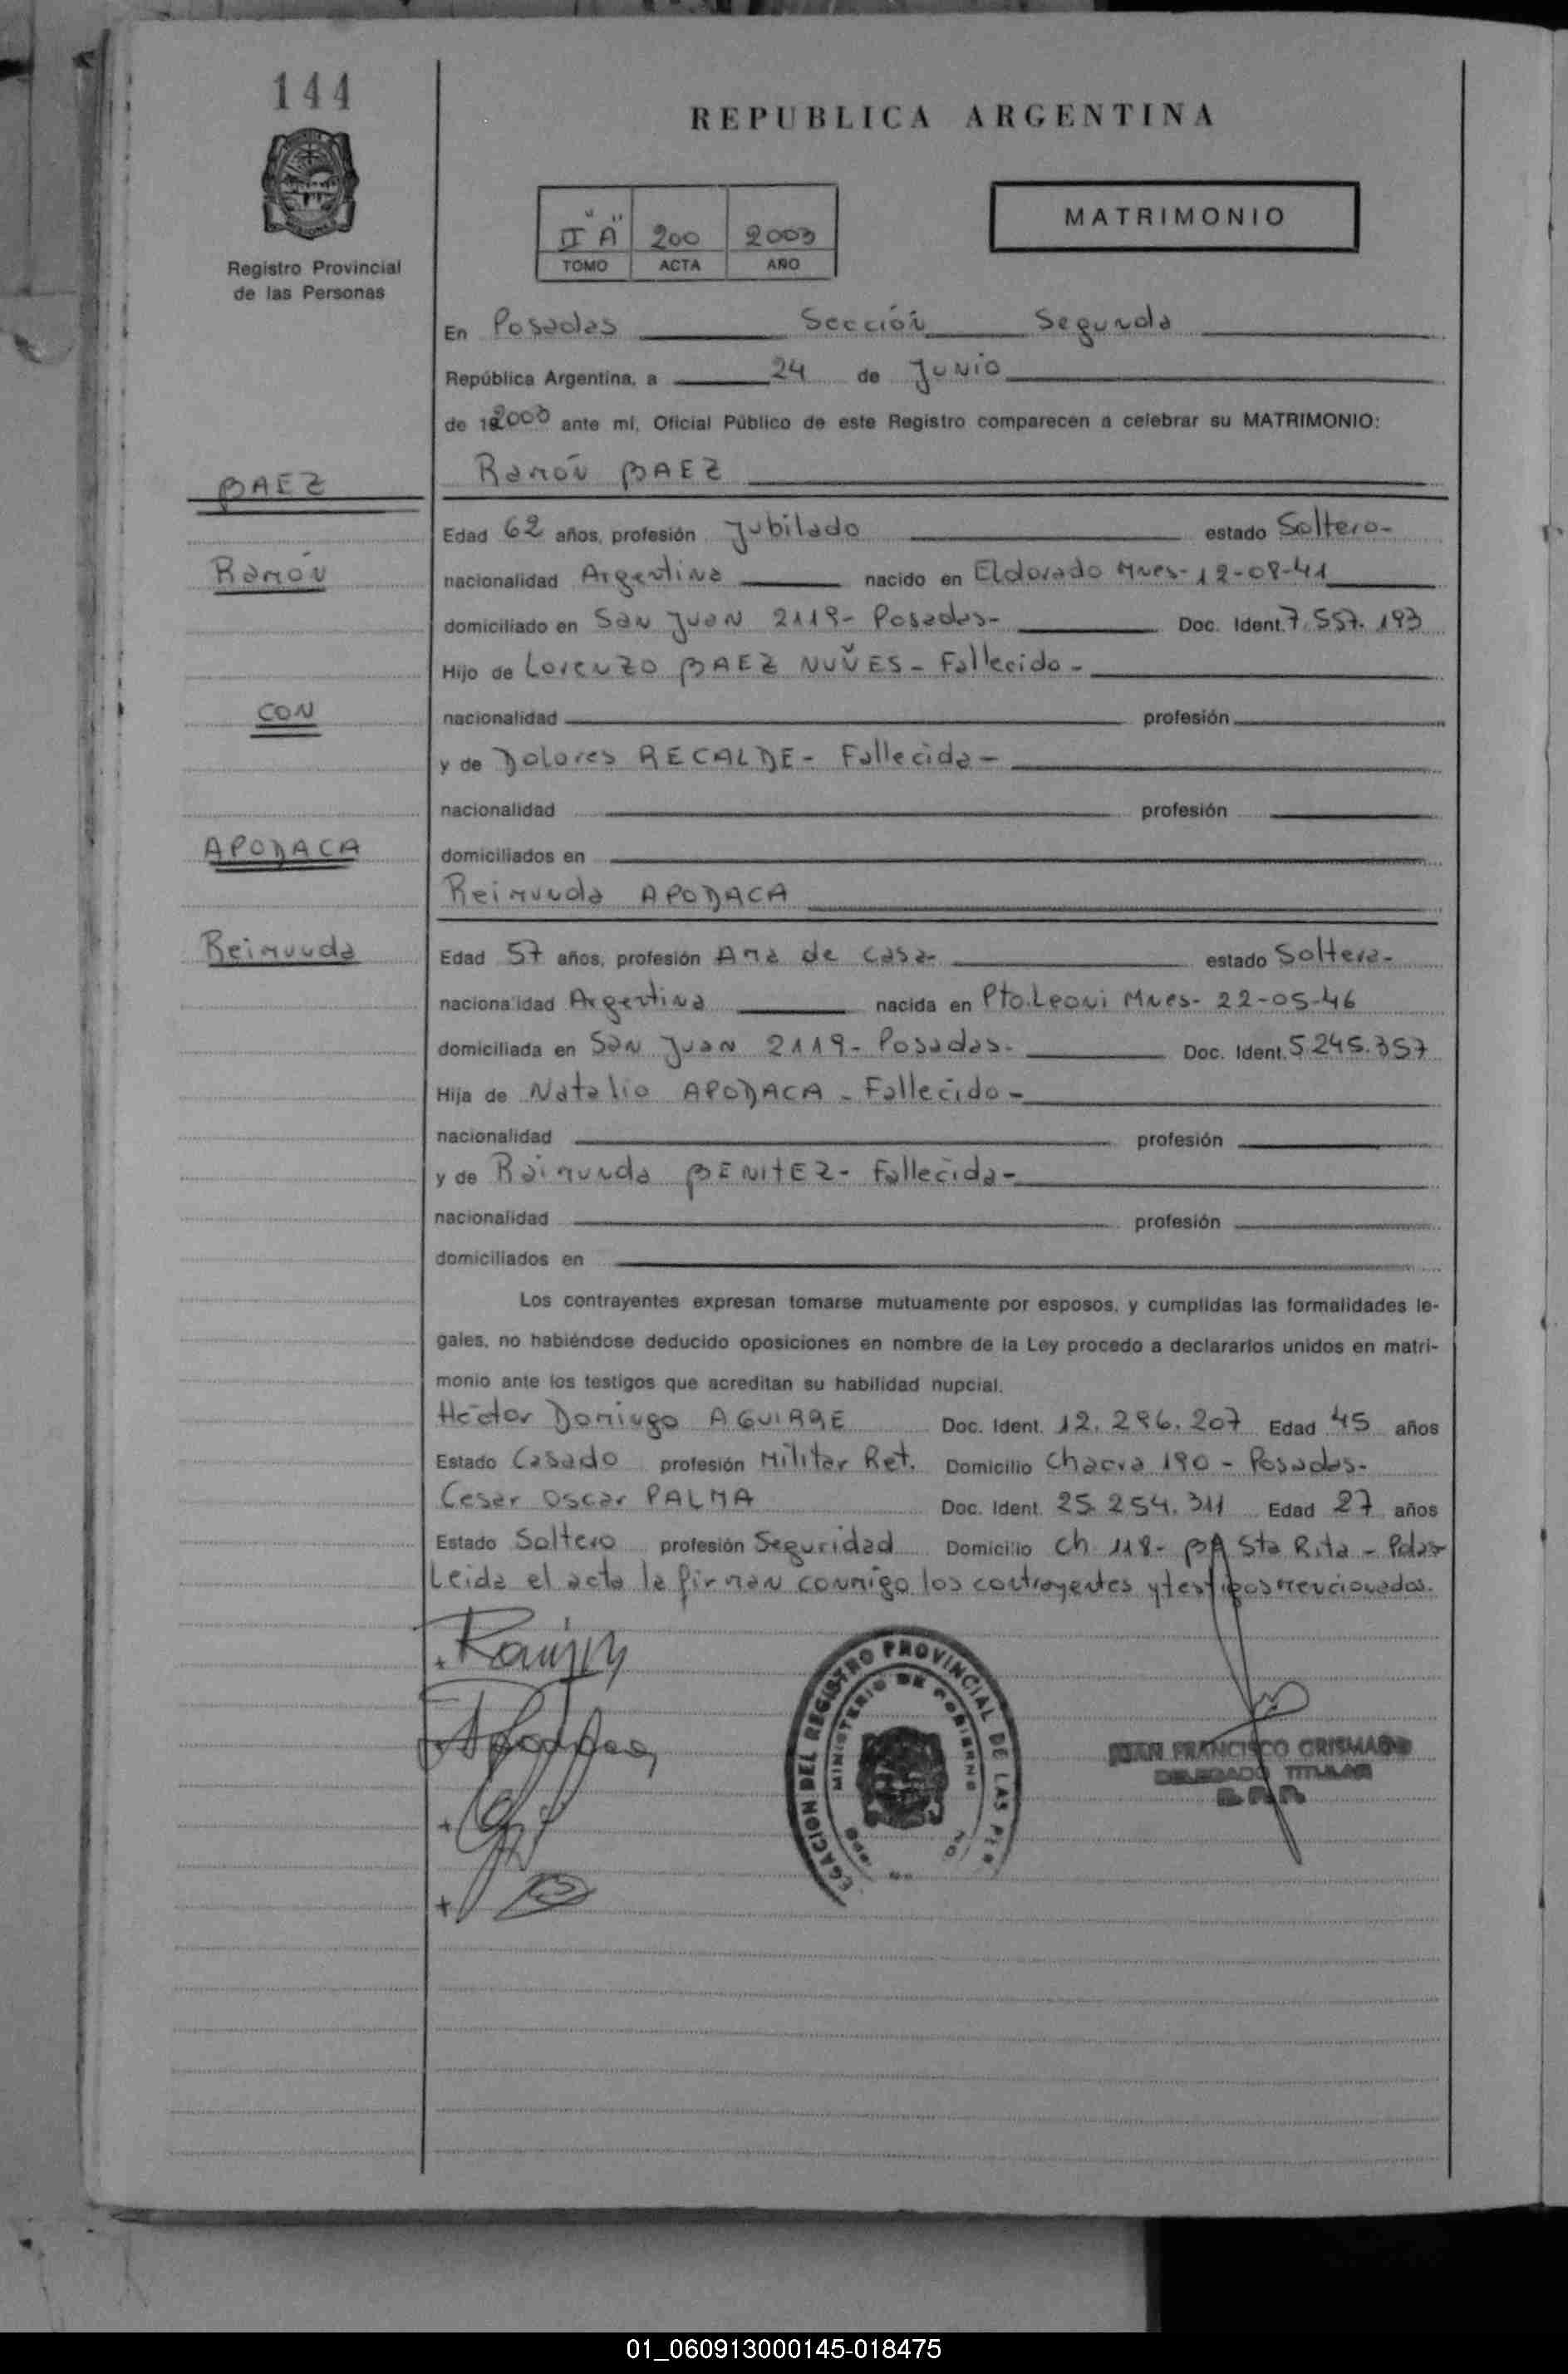 144
REPUBLICA ARGENTINA
MATRIMONIO
II "A" 200 2003
TOMO ACTA AÑO
Registro Provincial
de las Personas
En Posadas Sección Segunda
República Argentina, a 24 de Junio
de 2003 ante mí, Oficial Público de este Registro comparecen a celebrar su MATRIMONIO:
BAEZ
Ramón BAEZ
Edad 62 años, profesión Jubilado estado Soltero-
Ramón
nacionalidad Argentina nacido en Eldorado Mnes- 12-08-41
domiciliado en San Juan 2119- Posadas- Doc. Ident. 7.557.193
Hijo de Lorenzo BAEZ NUÑES- Fallecido-
CON
nacionalidad profesión
y de Dolores RECALDE- Fallecida-
nacionalidad profesión
APODACA
domiciliados en
Reimunda APODACA
Reimunda
Edad 57 años, profesión Ama de casa- estado Soltera-
nacionalidad Argentina nacida en Pto.Leoni Mnes- 22-05-46
domiciliada en San Juan 2119- Posadas- Doc. Ident. 5.245.357
Hija de Natalio APODACA - Fallecido-
nacionalidad profesión
y de Raimunda BENITEZ- Fallecida-
nacionalidad profesión
domiciliados en
Los contrayentes expresan tomarse mutuamente por esposos, y cumplidas las formalidades le-
gales, no habiéndose deducido oposiciones en nombre de la Ley procedo a declararlos unidos en matri-
monio ante los testigos que acreditan su habilidad nupcial.
Héctor Domingo AGUIRRE Doc. Ident. 12.296.207 Edad 45 años
Estado Casado profesión Militar Ret. Domicilio Chacra 190 - Posadas-
Cesar Oscar PALMA Doc. Ident. 25.254.311 Edad 27 años
Estado Soltero profesión Seguridad Domicilio Ch. 118- Bº Sta Rita - Pdas-
Leida el acta la firman conmigo los contrayentes y testigos mencionados.
DELEGACION DEL REGISTRO PROVINCIAL DE LAS PER
MINISTERIO DE GOBIERNO
JUAN FRANCISCO GRISMADO
DELEGADO TITULAR
01_060913000145-018475